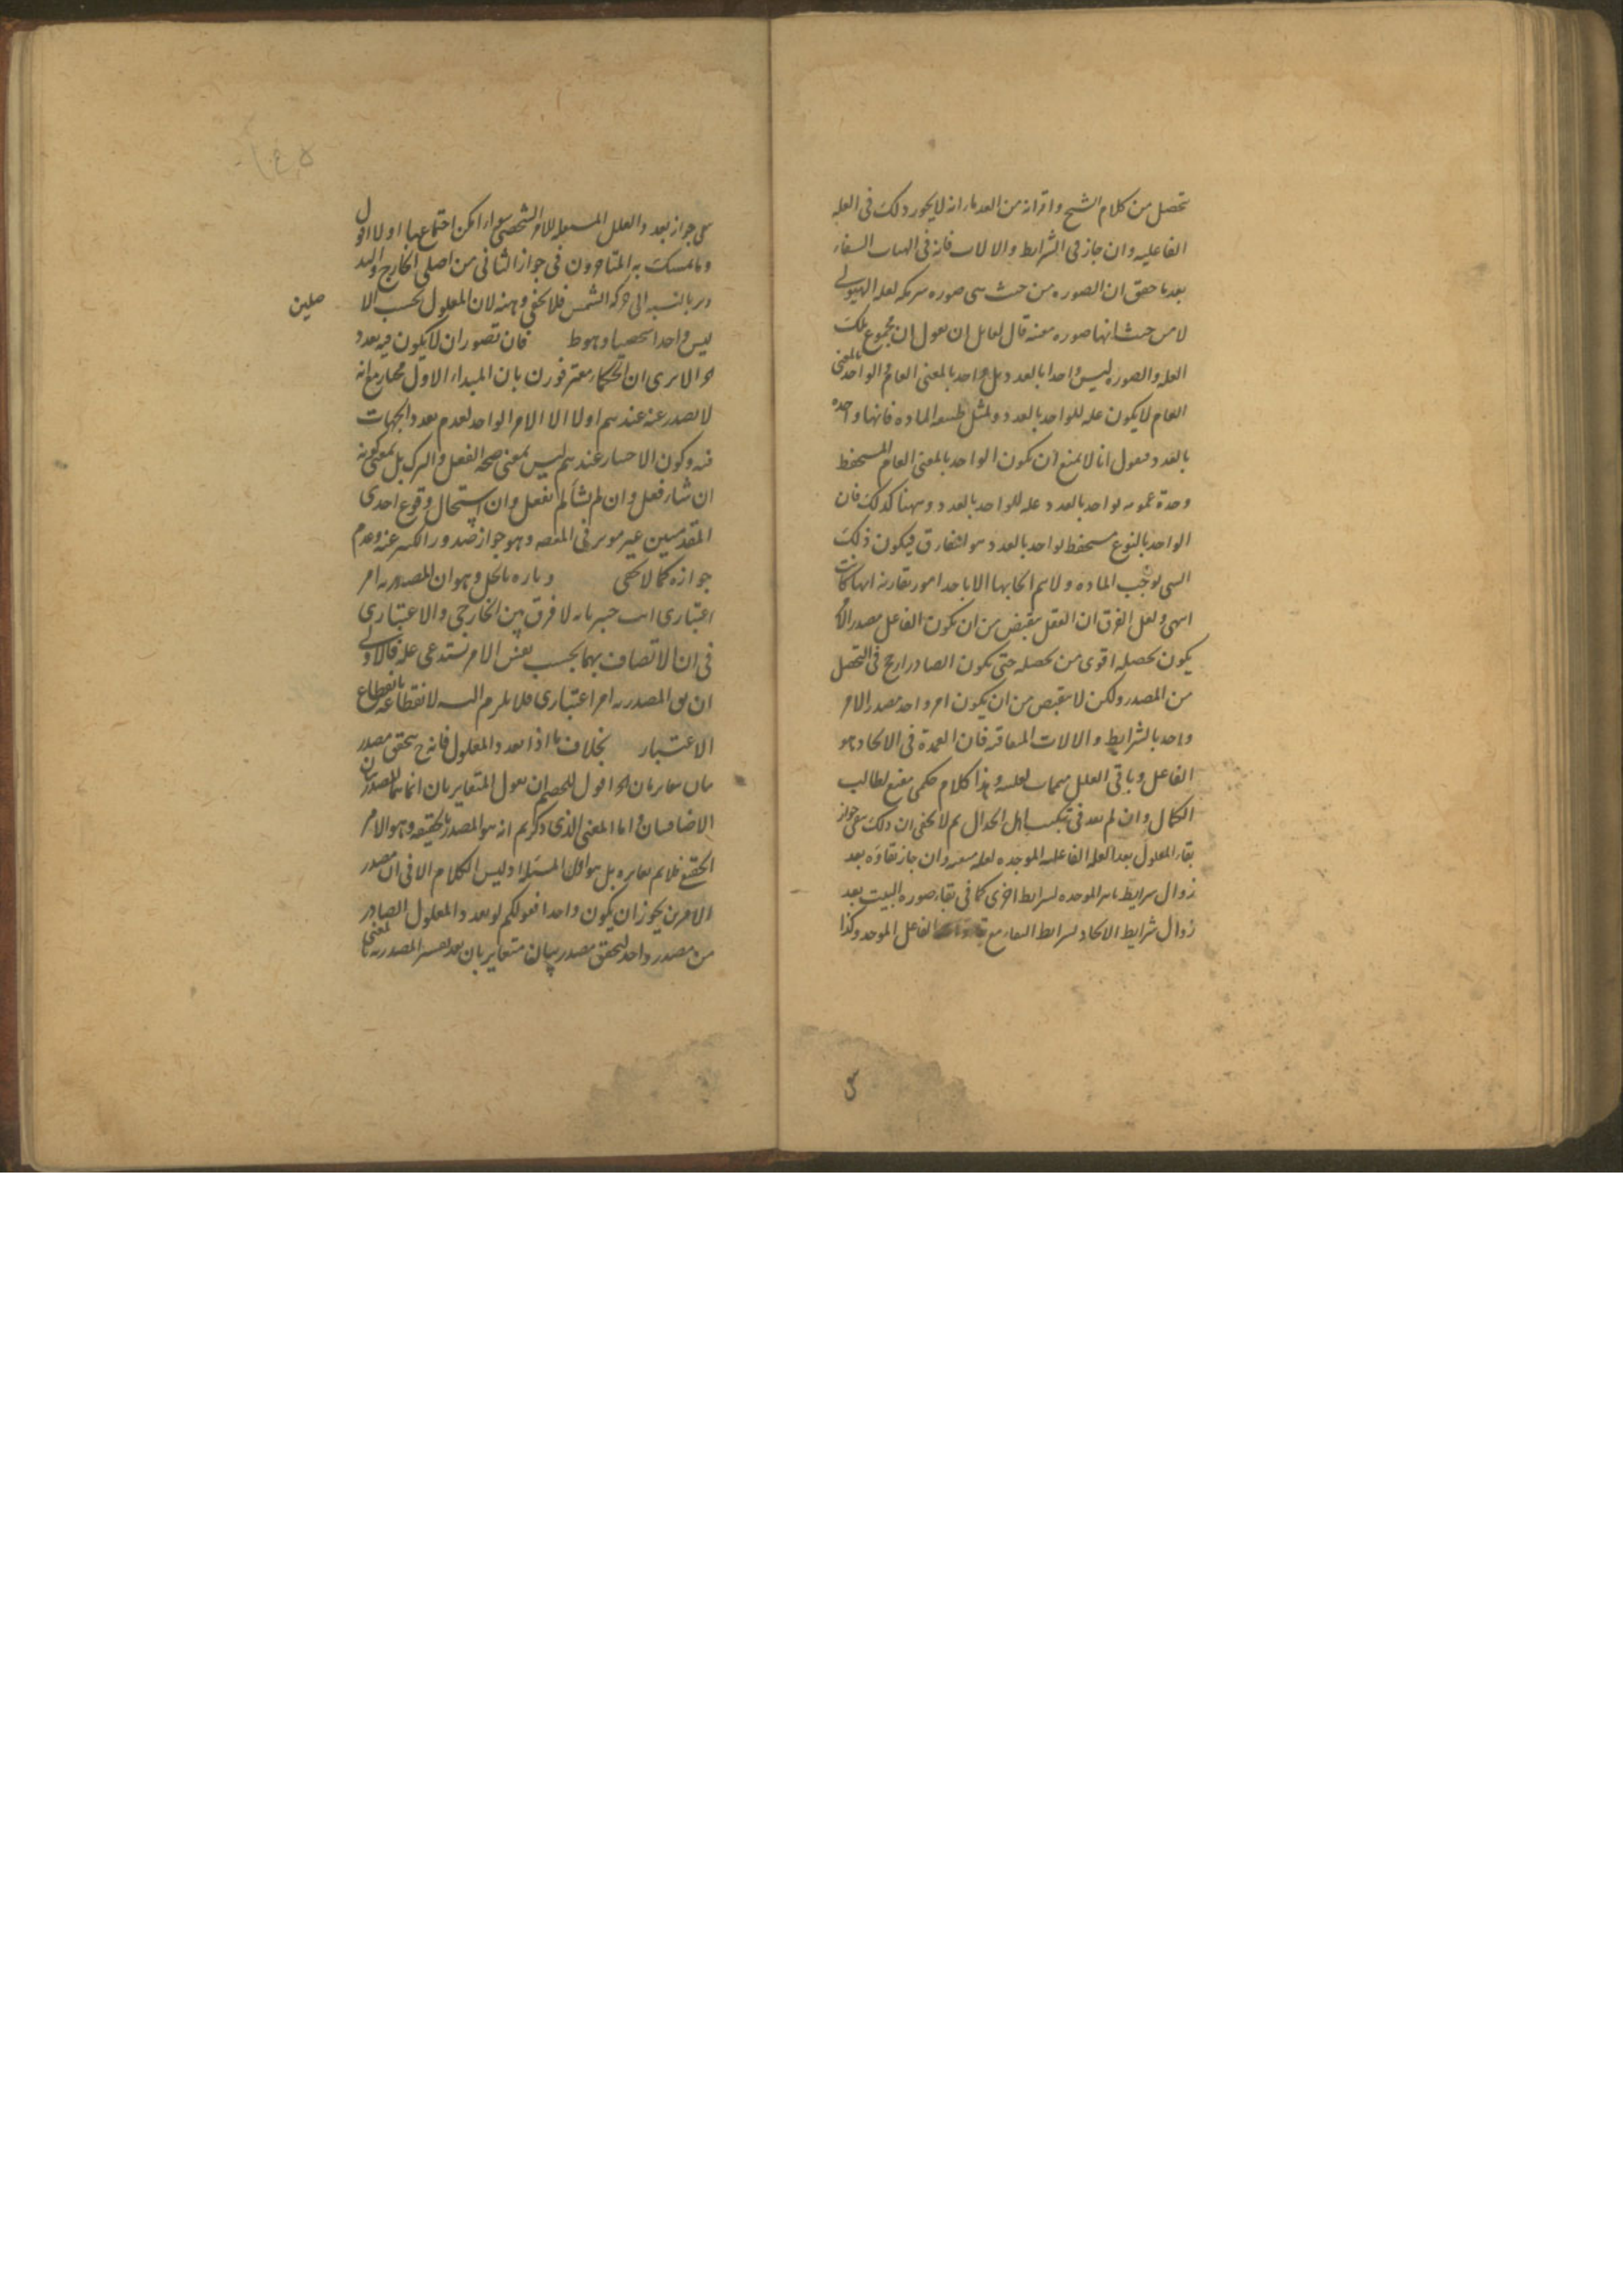 تحصل من كلام الشيخ واقرانه من العدماء انه لا يجوز ذلك فى العله
الفاعليه وان جاز فى الشرايط والالات فانه فى الهيات الشفاء
بعد ما حقق ان الصوره من حيث هى صوره شريكه لعله الهيولى
لا من حيث انها صوره معينه قال لقايل ان يقول ان مجموع تلك
العله والصوره ليس واحدا بالعدد بل واحد بالمعنى العام والواحد بالمعنى
العام لا يكون عله للواحد بالعدد ولمثل طبيعه الماده فانها واحده
بالعدد فنقول انا لا نمنع ان يكون الواحد بالمعنى العام المستحفظ
وحدة عمومه لواحد بالعدد عله للواحد بالعدد وههنا كذلك فان
الواحد بالنوع مستحفظ لواحد بالعدد هو المفارق فيكون ذلك
الشى يوجب الماده ولا يتم ايجابها الا باحد امور تقارنه ايها كانت
انتهى ولعل الفرق ان العقل ينقبض من ان يكون الفاعل مصدر الا
يكون تحصله اقوى من تحصله حتى يكون الصادر ارجح فى التحصل
من المصدر ولكن لا ينقبض من ان يكون امر واحد مصدر الامر
واحد بالشرايط والالات المتعاقبه فان العمدة فى الايجاد هو
الفاعل وباقى العلل متممات لعليته وهذا كلام حكمى مقنع لطالب
الكمال وان لم يعد فى تبكيت اهل الجدال ثم لا يخفى ان ذلك ينفى جواز
بقاء المعلول بعد العله الفاعليه الموجده لعله معينه وان جاز بقاؤه بعد
زوال شرايط تاثير الموجده لشرايط اخرى كما فى بقاء صوره البيت بعد
زوال شرايط الايجاد لشرايط البقاء مع الفاعل الموجد وكذا
ينفى جواز تعدد العلل المستقله للامر الشخصى سواء امكن اجتماعها اولا الاول
وما تمسك به المتاخرون فى جواز الثانى من اصلى الخارج والتد
وير بالنسبه الى حركه الشمس فلا يخفى وهنه لان المعلول بحسب الا صلين
ليس واحدا شخصيا وهو ط فان تصور ان لا يكون فيه تعدد
اه الا ترى ان الحكماء معترفون بان المبداء الاول مختار مع انه
لا يصدر عنه عندهم اولا الا الامر الواحد لعدم تعدد الجهات
فيه وكون الاختيار عندهم ليس بمعنى صحه الفعل والترك بل بمعنى كونه
ان شاء فعل وان لم يشأ لم يفعل وان استحال وقوع احدى
المقدمتين غير موثر فى المقصد وهو جواز صدور الكثير عنه وعدم
جوازه كما لا يخفى وتاره بالحل وهو ان المصدريه امر
اعتبارى انت خبير بانه لا فرق بين الخارجى والاعتبارى
فى ان الاتصاف بهما بحسب نفس الامر يستدعى عله فالاولى
ان يق المصدريه امر اعتبارى فلا يلزم التسه لانقطاعه بانقطاع
الاعتبار بخلاف ما اذا تعدد المعلول فانه ح يتحقق مصدر
يتان متغايرتان اه اقول للخصم ان يقول المتغايرتان انما هما المصدريتان
الاضافيتان واما المعنى الذى ذكرتم انه هو المصدر بالحقيقه وهو الامر
الحقيقى فلا يتم تغايره بل هو اول المسئله اذ ليس الكلام الا فى ان مصدر
الامرين يجوز ان يكون واحدا فقولكم لو تعدد المعلول الصادر
من مصدر واحد لتحقق مصدريتان متغايرتان بعد تفسير المصدريه بالمعنى